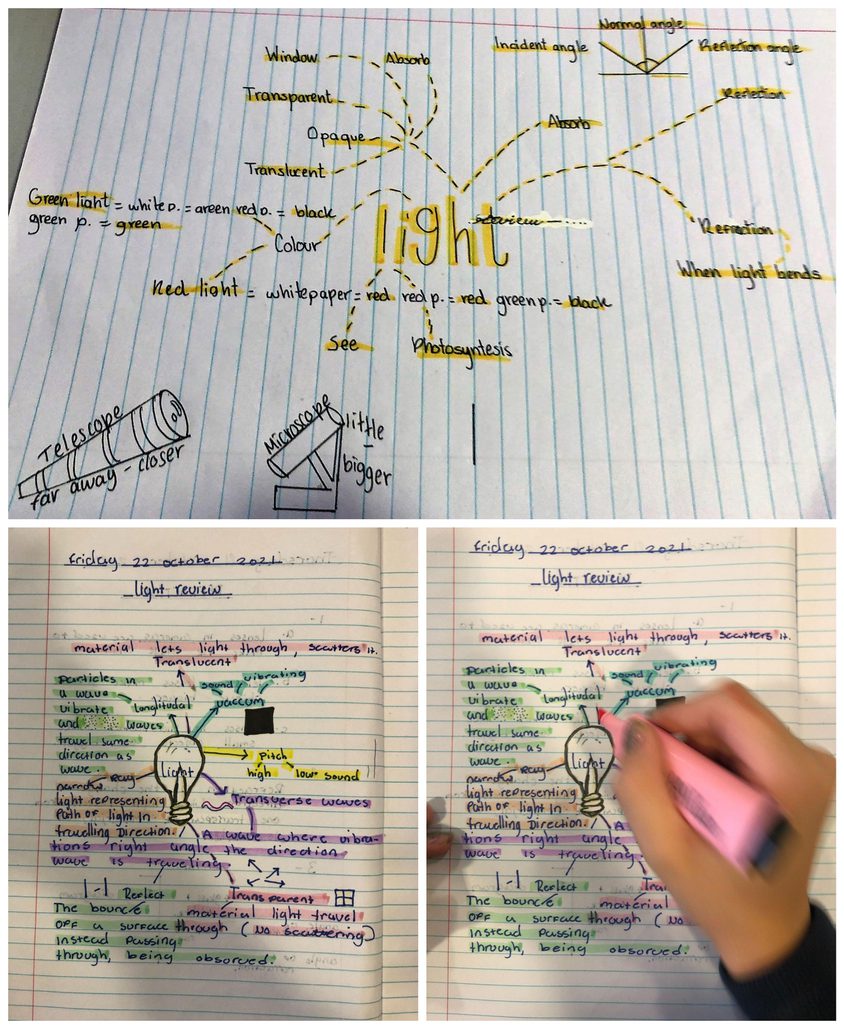 Normal angle
Incident angle
Reflection angle
Window
Absorb
Transparent
Opaque
Translucent
Absorb
Reflection
Green light = white p. = green red p. = black
green p. = green
Colour
light
Refraction
When light bends
Red light = white paper = red red p. = red green p. = black
See
Photosyntesis
Telescope
far away - closer
Microscope
little
-
bigger
Friday 22 october 2021
light review
material lets light through, scatters it.
Translucent
particles in
a wave
vibrate
and waves
travel same
direction as
wave.
longitudal
sound
vibrating
vaccum
Light
pitch
high
low sound
Ray
narrow
light representing
Path of light In
travelling Direction.
Transverse waves
A wave where vibra-
tions right angle the direction
wave is traveling.
Reflect
The bounce
off a surface
instead passing
through, being obsorved.
Transparent
material light travel
through (no scattering)
Friday 22 october 2021
light review
material lets light through, scatters it.
Translucent
particles in
a wave
vibrate
and waves
travel same
direction as
wave.
longitudal
sound
vibrating
vaccum
Light
Ray
narrow
light representing
Path of light In
travelling Direction.
A
tions right angle
wave is traveling.
Reflect
The bounce
off a surface
instead passing
through, being obsorved.
Tra
material
through (no